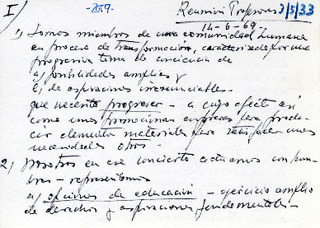 I/ -2059- Reunión Profesores 3/5/33
14-6-69-
1) Somos miembros de una comunidad humana
en proceso de transformación, caracterizada por una
progresiva toma de conciencia de
a) posibilidades amplias y
b) de aspiraciones irrenunciables.
que necesita progresar - a cuyo efecto así
como unas promocionan empresas para produ-
cir elementos materiales para satisfacer unas
necesidades otros -
2) Nosotros en ese concierto actuamos
- representamos
a) opciones de educación - ejercicio amplio
de derechos y aspiraciones fundamentales -